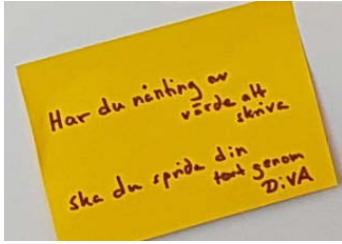 Har du nånting av
värde att
skriva
ska du sprida din
text genom
DiVA